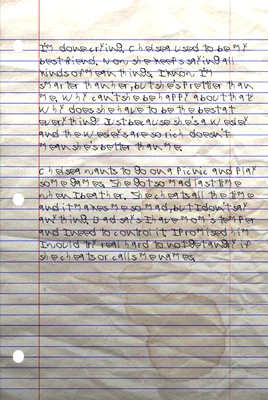 I'm done crying. Chelsea used to be my
best friend. Now she keeps saying all
kinds of mean things. I know I'm
smarter than her, but she's prettier than
me. Why can't she be happy about that
Why does she have to be the best at
everything Just because she's a Wesley
and the Wesleys are so rich doesn't
mean she's better than me.

Chelsea wants to go on a picnic and play
some games. She got so mad last time
when I beat her. She cheats all the time
and it makes me so mad, but I don't say
anything. Dad says I have Mom's temper
and I need to control it. I promised him
I would try real hard to not get angry if
she cheats or calls me names.